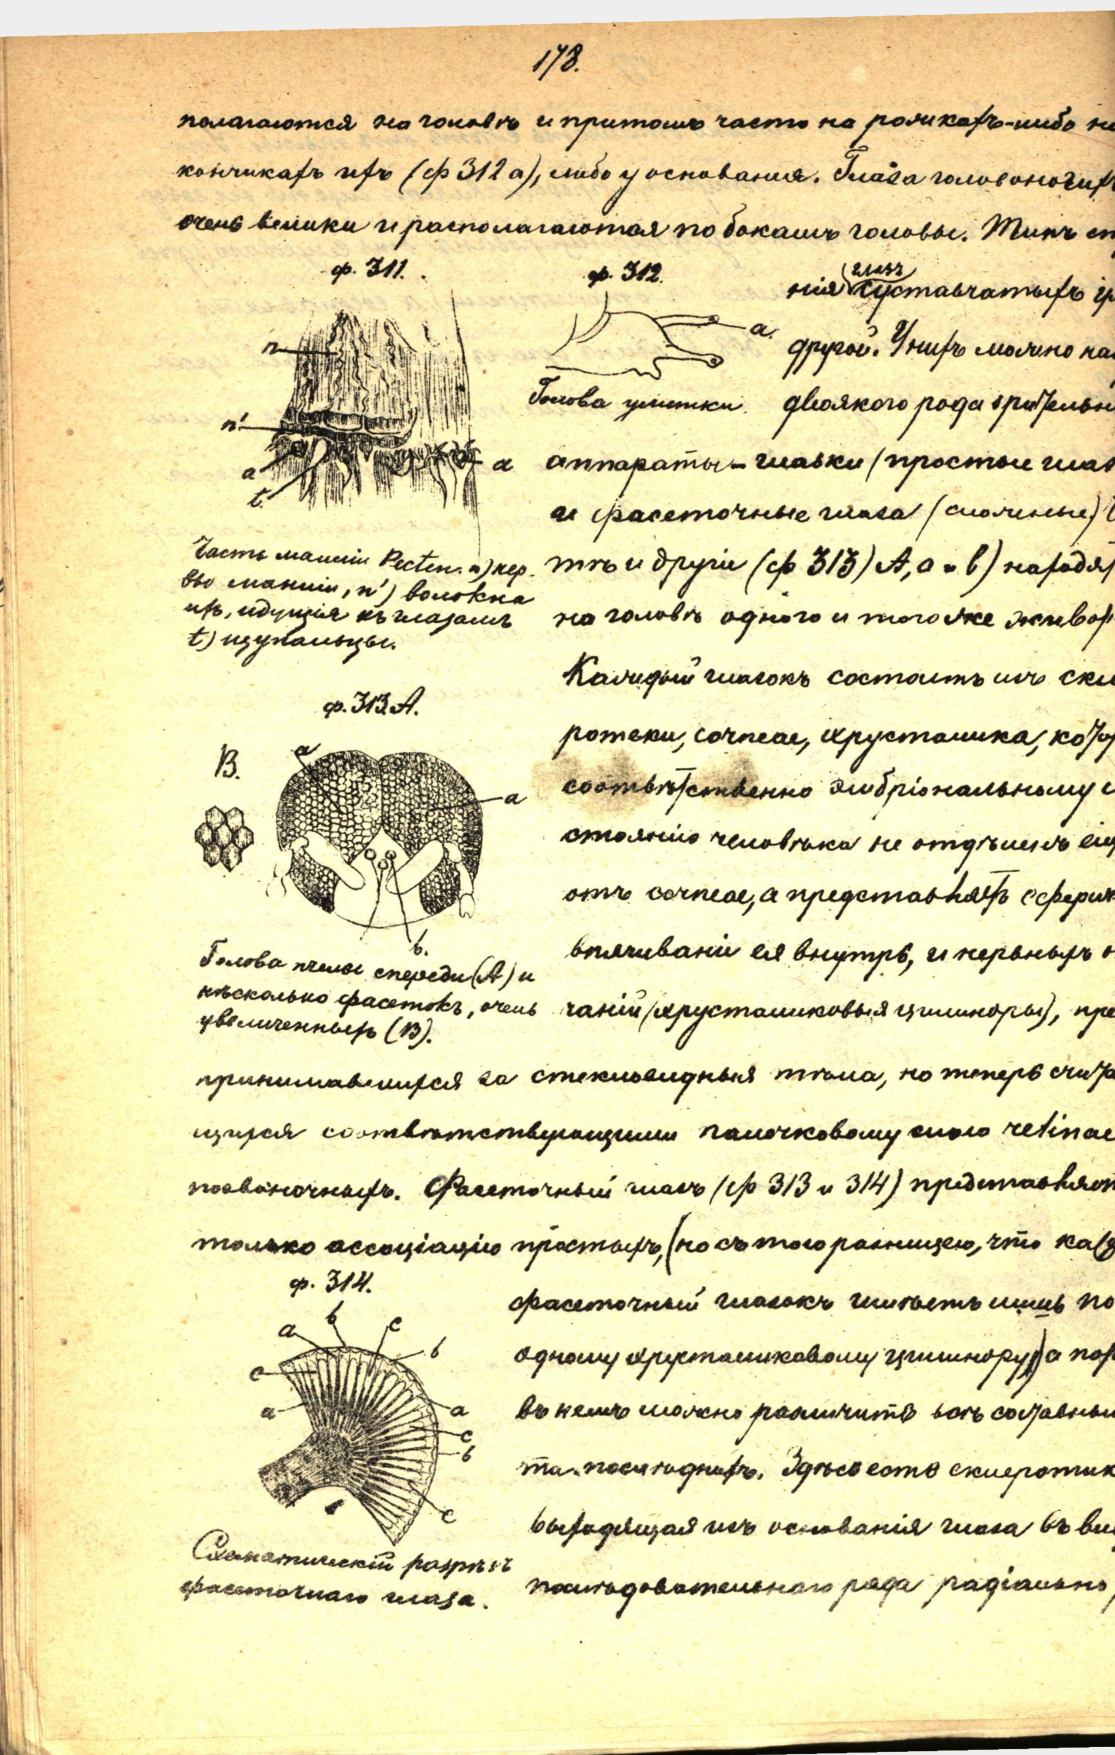 178.
полагаются на головѣ и притомъ часто на рожкахъ-либо на
кончикахъ ихъ (ф 312 а), либо у основанія. Глаза головоногихъ
очень велики и располагаются по бокамъ головы. Типъ ст
ф. 311.
ф. 312.
нія глазъ суставчатыхъ
другой. У нихъ можно на
двоякого рода зрительн
n
n'
a
t.
a
a.
Голова улитки.
аппараты - глазки (простые глаз
и фасеточные глаза (сложные)
тѣ и другіе (ф 313) А, а и b) находят
на головѣ одного и того же живот
Часть мантіи Pecten. n) нер-
вы мантіи, n') волокна
ихъ, идущія къ глазамъ
t) щупальцы.
Каждый глазокъ состоитъ изъ скле
ротеки, corneae, хрусталика, котор
соотвѣтственно эмбріональному с
стоянію человѣка не отдѣленъ ещ
отъ corneae, а представляетъ сферич
впячиваніе ея внутрь, и нервныхъ о
чаній (хрусталиковыя цилиндры), пре
ф. 313. А.
B.
a
a
b.
Голова пчелы спереди (А) и
нѣсколько фасетокъ, очень
увеличенныхъ (В).
принимавшихся за стекловидныя тѣла, но теперь счита
щихся соотвѣтствующими палочковому слою retinae
позвоночныхъ. Фасеточный глазъ (ф 313 и 314) представляет
только ассоціацію простыхъ, (но съ тою разницею, что кажд
ф. 314.
фасеточный глазокъ имѣетъ лишь по
одному хрусталиковому цилиндру) а пот
въ немъ можно различить всѣ составны
та послѣднихъ. Здѣсь есть склеротик
выходящая изъ основанія глаза въ ви
послѣдовательнаго ряда радіально
a
b
c
b
c
a
a
c
b
c
Схематическій разрѣзъ
фасеточнаго глаза.